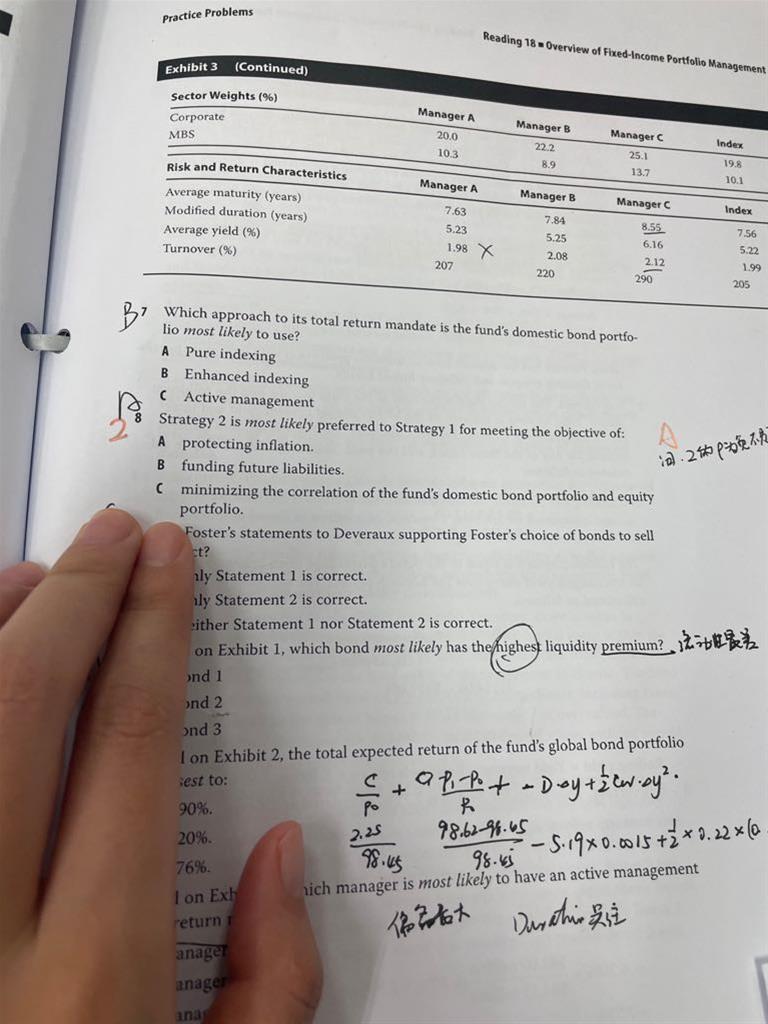 Practice Problems
Reading 18 ■ Overview of Fixed-Income Portfolio Management
Exhibit 3 (Continued)
Sector Weights (%) Manager A Manager B Manager C Index
Corporate 20.0 22.2 25.1 19.8
MBS 10.3 8.9 13.7 10.1
Risk and Return Characteristics Manager A Manager B Manager C Index
Average maturity (years) 7.63 7.84 8.55 7.56
Modified duration (years) 5.23 5.25 6.16 5.22
Average yield (%) 1.98 X 2.08 2.12 1.99
Turnover (%) 207 220 290 205
B 7 Which approach to its total return mandate is the fund's domestic bond portfo-
lio most likely to use?
A Pure indexing
B Enhanced indexing
C Active management
8 Strategy 2 is most likely preferred to Strategy 1 for meeting the objective of:
2
A protecting inflation. A
B funding future liabilities.
C minimizing the correlation of the fund's domestic bond portfolio and equity
portfolio.
Foster's statements to Deveraux supporting Foster's choice of bonds to sell
ct?
nly Statement 1 is correct.
nly Statement 2 is correct.
either Statement 1 nor Statement 2 is correct.
on Exhibit 1, which bond most likely has the highest liquidity premium? 流动性最差
ond 1
ond 2
ond 3
on Exhibit 2, the total expected return of the fund's global bond portfolio
sest to:
90%.
20%.
76%.
C/P₀ + P₁-P₀/P₀ + -D·Δy + 1/2 Con·Δy².
2.25/98.45 98.62-98.45/98.45 - 5.19×0.0015 + 1/2 × 0.22 × (0
on Exh hich manager is most likely to have an active management
return
anager
anager
ana
Duration